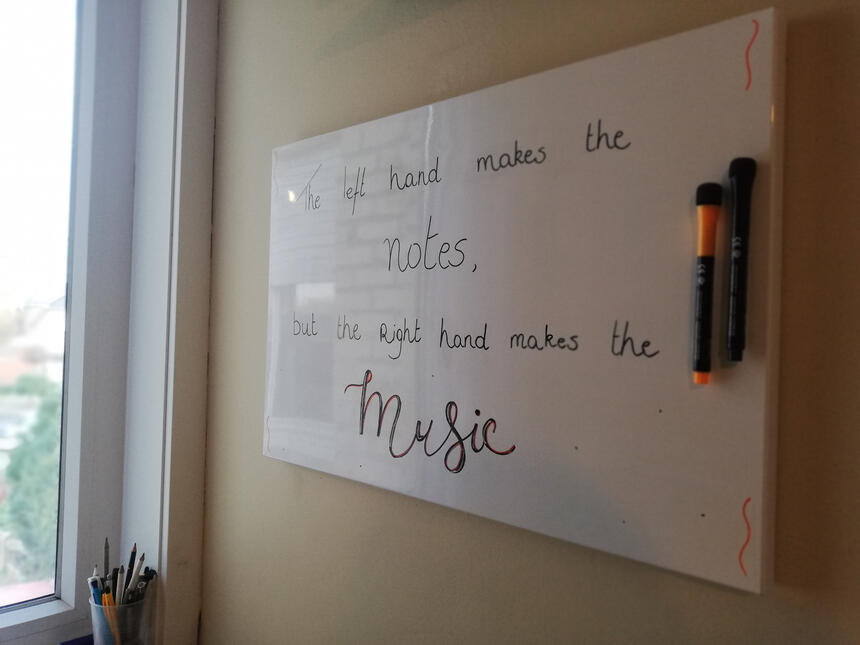 The left hand makes the
notes,
but the Right hand makes the
Music